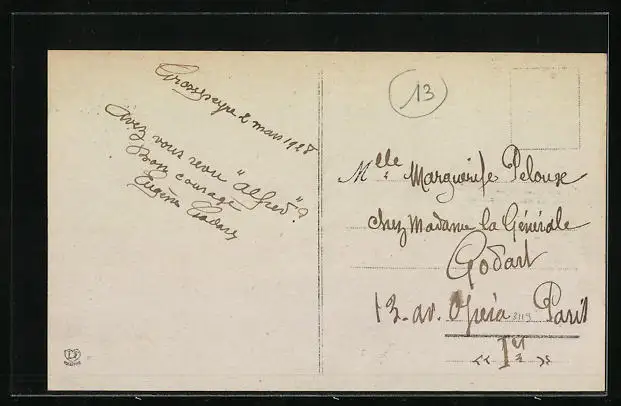 2 mars 1928
Avez vous revu "Alfred"?
Bon courage
Eugène
13
Mlle Marguerite Pelouze
chez Madame la Générale
Godart
13 - av. Opéra Paris
« Ier »